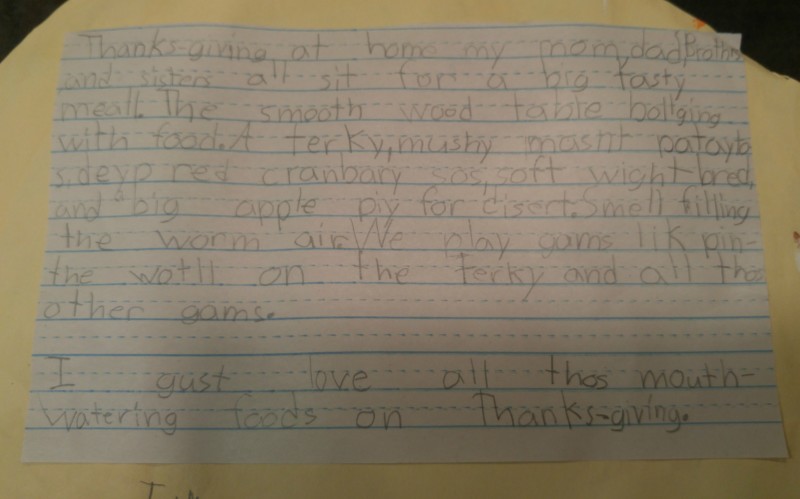 Thanks-giving at home my mom, dad, Brothe
and sisters all sit for a big tasty
meall. The smooth wood table bollging
with food. A terky, mushy masht patayto
s, deyp red cranbary sos, soft wight bred,
and a big apple piy for disert. Smell filling
the worm air. We play gams lik pin-
the wotll on the terky and all tho
other gams.
I gust love all thos mouth-
watering foods on Thanks-giving.